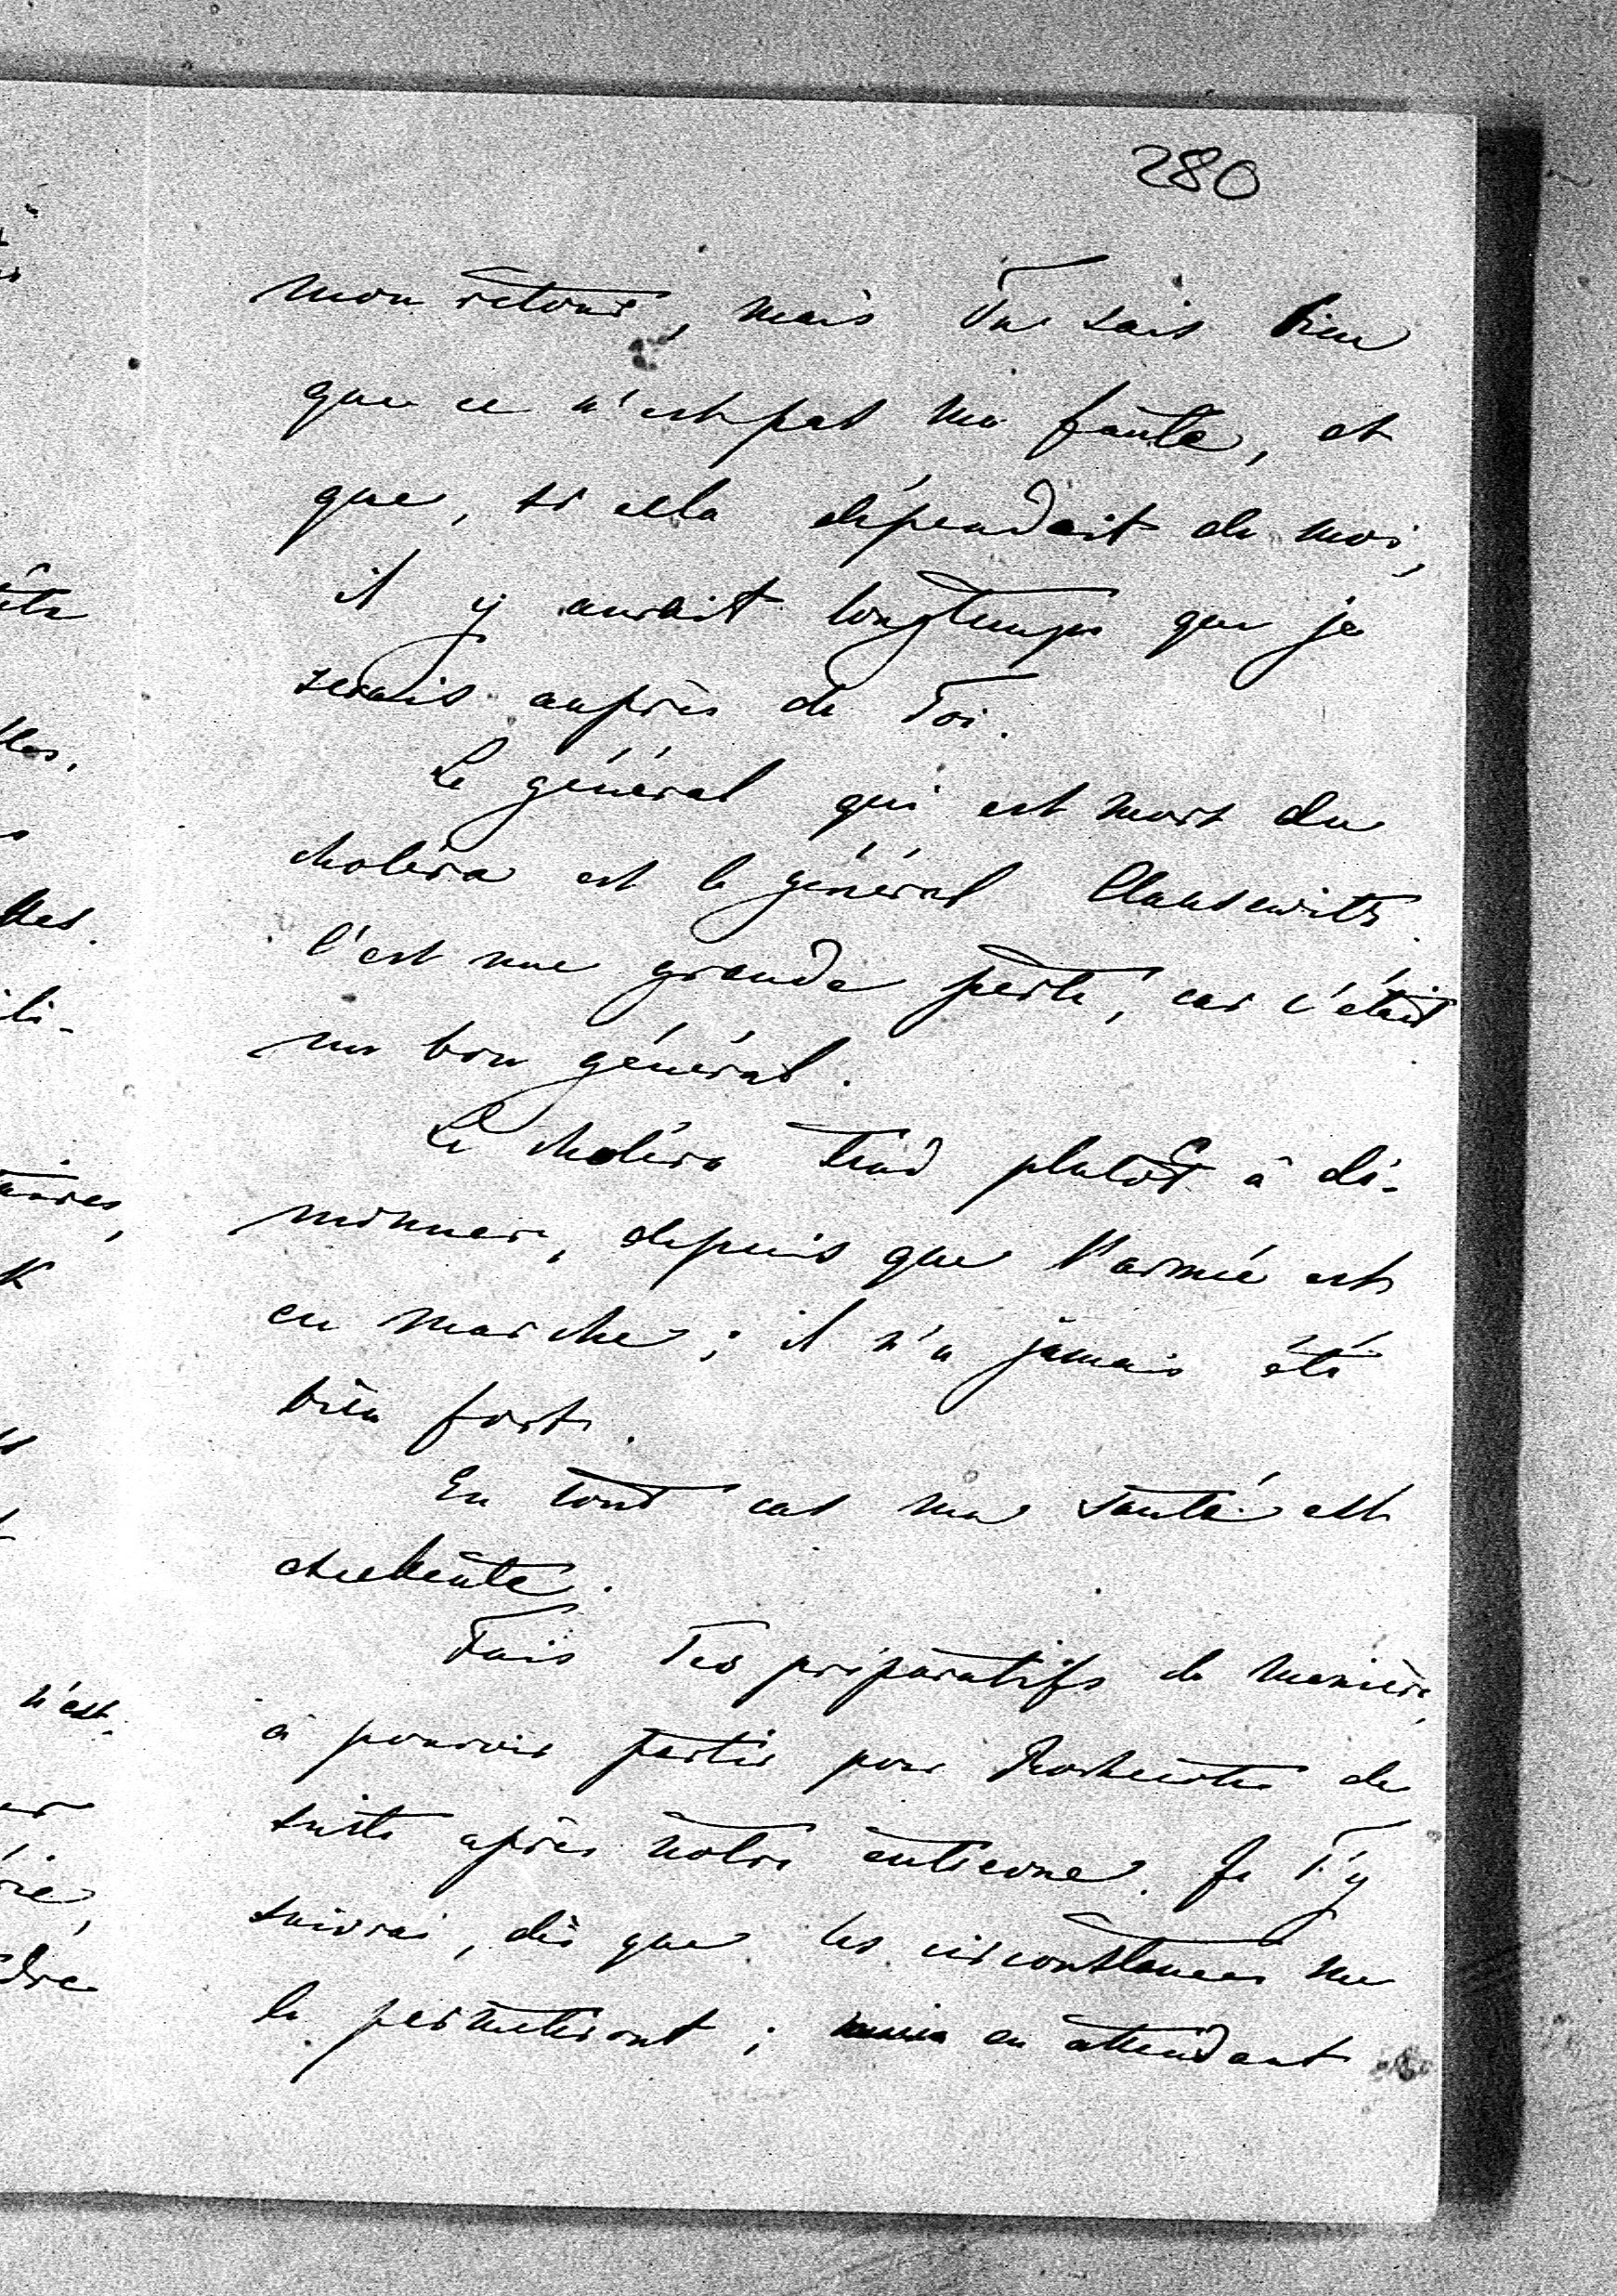 280
mon retour, mais Tu sais bien
que ce n'est pas ma faute, et
que, si cela dépendait de moi,
il y aurait longtemps que je
serais auprès de Toi.
Le général qui est mort du
choléra est le général Clausewitz.
C'est une grande perte, car c'était
un bon général.
Le choléra tend plutôt à di-
minuer, depuis que l'armée est
en marche; il n'a jamais été
bien fort.
En tout cas ma santé est
excellente.
Fais Tes préparatifs de manière
à pouvoir partir pour de
suite après notre entrevue. Je T'y
suivrai, dès que les circonstances me
le permettront; mais en attendant